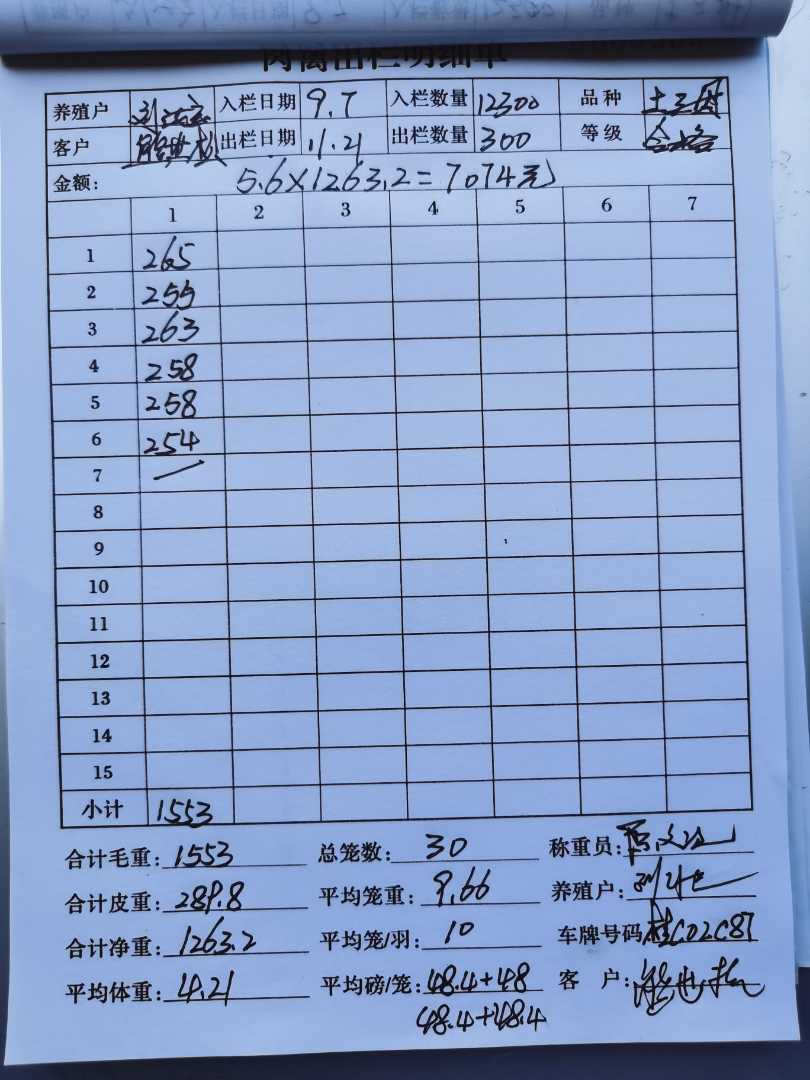 肉禽出栏明细单
养殖户 入栏日期 9.7 入栏数量 12300 品种
客户 出栏日期 11.21 出栏数量 300 等级 合格
金额: 5.6×1263.2=7074元
1 2 3 4 5 6 7
1 265
2 255
3 263
4 258
5 258
6 254
7
8
9
10
11
12
13
14
15
小计 1553
合计毛重: 1553 总笼数: 30 称重员:
合计皮重: 289.8 平均笼重: 9.66 养殖户:
合计净重: 1263.2 平均笼/羽: 10 车牌号码 桂C02C87
平均体重: 4.21 平均磅/笼: 48.4+48 客户:
48.4+48.4